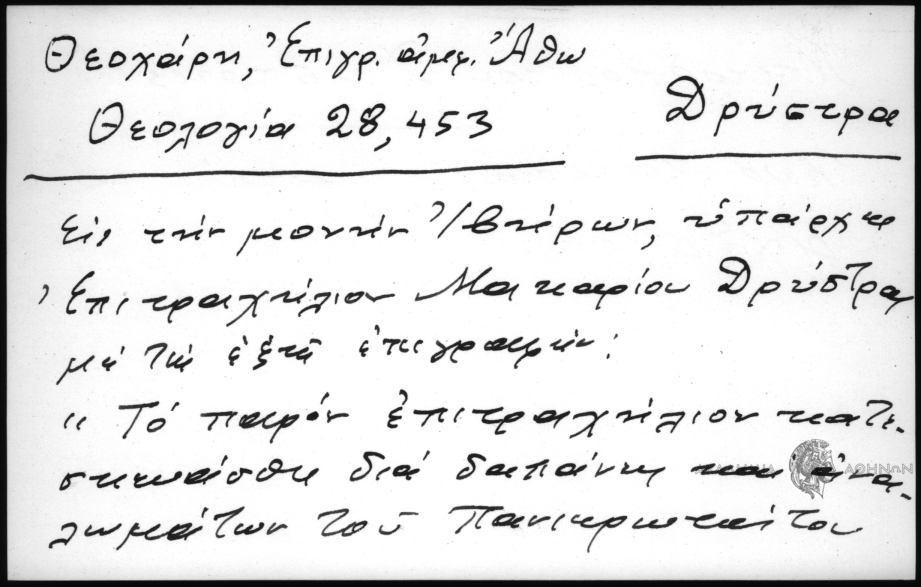 Θεοχάρη, Ἐπιγρ. ἀμφ. Ἄθω
Θεολογία 28, 453
Δρύστρα
Εἰς τὴν μονὴν Ἰβήρων, ὑπάρχει
Ἐπιτραχήλιον Μακαρίου Δρύστρας
μὲ τὴν ἑξῆς ἐπιγραφήν:
"Τὸ παρὸν ἐπιτραχήλιον κατε-
σκευάσθη διὰ δαπάνης καὶ ἀνα-
λωμάτων τοῦ Πανιερωτάτου
ΑΘΗΝΩΝ